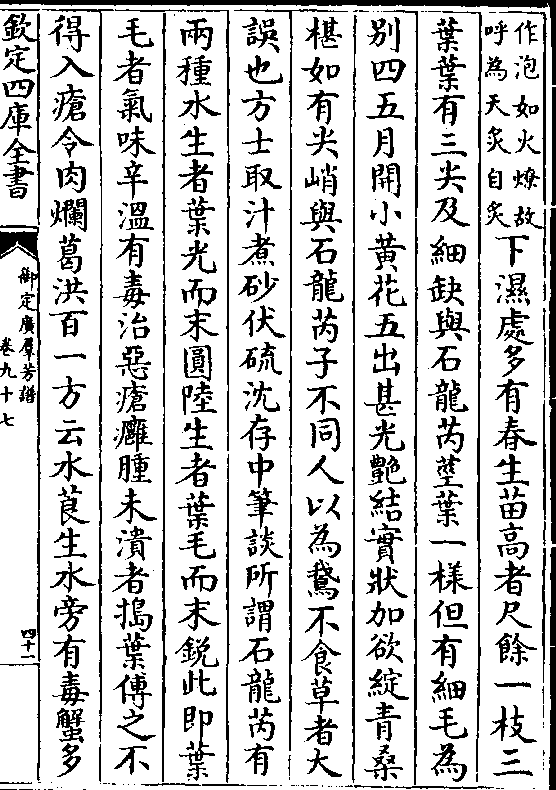 作泡如火燎故
呼為天灸自灸
下濕處多有春生苗高者尺餘一枝三
葉葉有三尖及細缺與石龍芮莖葉一樣但有細毛為
别四五月開小黄花五出甚光艷結實狀加欲綻青桑
椹如有尖峭與石龍芮子不同人以為鵞不食草者大
誤也方士取汁煮砂伏硫沈存中筆談所謂石龍芮有
兩種水生者葉光而末圓陸生者葉毛而末鋭此即葉
毛者氣味辛溫有毒治惡瘡癰腫未潰者搗葉傅之不
得入瘡令肉爛葛洪百一方云水莨生水旁有毒蟹多
欽定四庫全書
御定廣羣芳譜
卷九十七
四十一